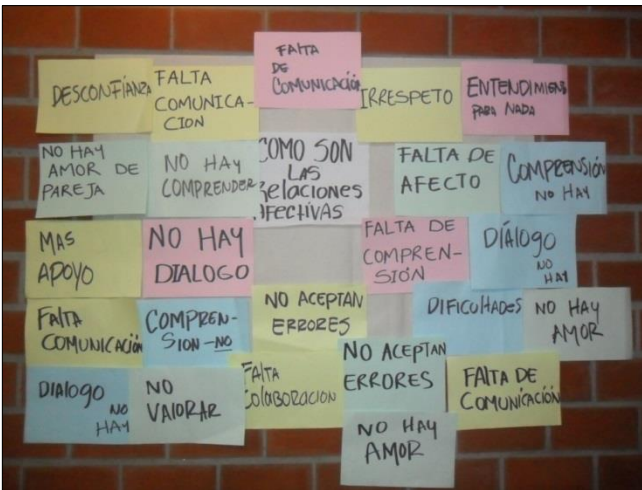 FALTA
DE
COMUNICACIÓN
DESCONFIANZA
FALTA
COMUNICA-
CION
IRRESPETO
ENTENDIMIENTO
PARA NADA
NO HAY
AMOR DE
PAREJA
NO HAY
COMPRENDER
COMO SON
LAS
Relaciones
AFECTIVAS
FALTA DE
AFECTO
COMPRENSIÓN
NO HAY
MAS
APOYO
NO HAY
DIALOGO
FALTA DE
COMPREN-
SIÓN
DÍALOGO
NO
HAY
FALTA
COMUNICACIÓN
COMPREN-
SION-NO
NO ACEPTAN
ERRORES
DIFICULTADES
NO HAY
AMOR
DIALOGO
NO
HAY
NO
VALORAR
FALTA
COLABORACION
NO ACEPTAN
ERRORES
FALTA DE
COMUNICACIÓN
NO HAY
AMOR